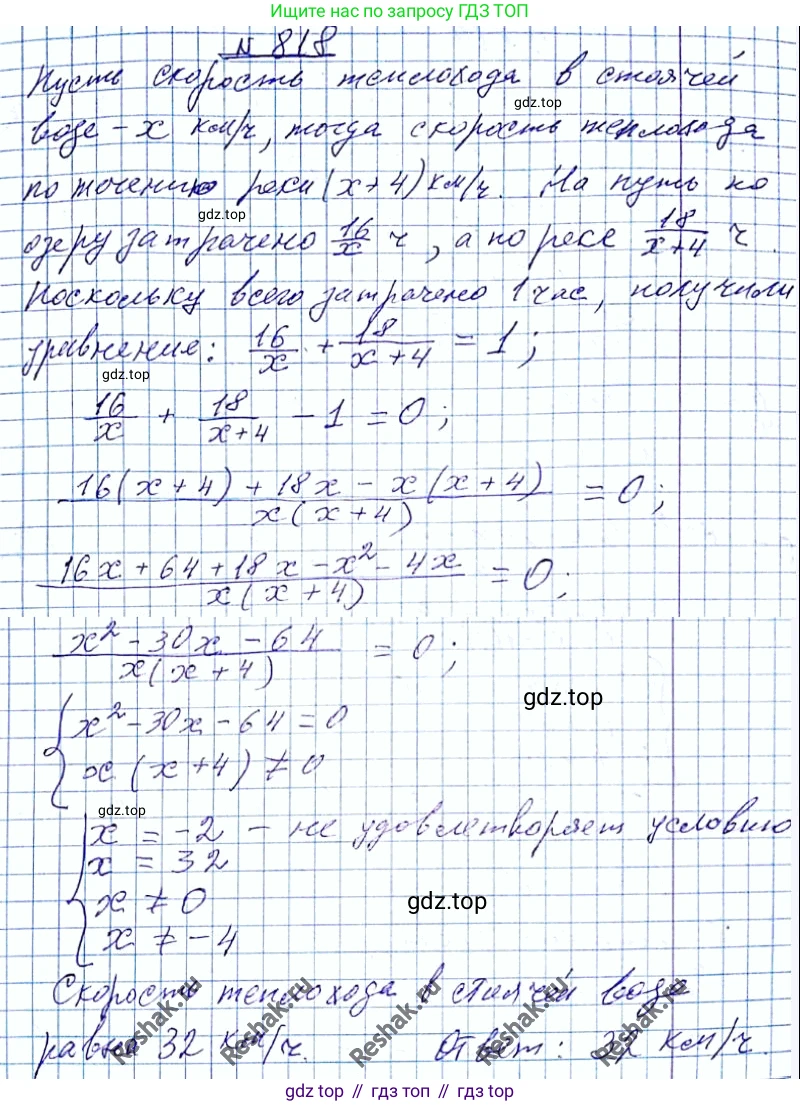 Ищите нас по запросу ГДЗ ТОП
№ 818
Пусть скорость теплохода в стоячей
gdz.top
воде – x км/ч, тогда скорость теплохода
по течению реки (x+4) км/ч. На путь по
gdz.top
озеру затрачено 16/x ч, а по реке 18/(x+4) ч.
Поскольку всего затрачено 1 час, получили
уравнение: 16/x + 18/(x+4) = 1;
gdz.top
16/x + 18/(x+4) – 1 = 0;
(16(x+4) + 18x – x(x+4))/(x(x+4)) = 0;
(16x + 64 + 18x – x² – 4x)/(x(x+4)) = 0;
(x² – 30x – 64)/(x(x+4)) = 0;
gdz.top
{ x² – 30x – 64 = 0
x(x+4) ≠ 0
gdz.top
{ x = –2 – не удовлетворяет условию
x = 32
x ≠ 0
gdz.top
x ≠ –4
Скорость теплохода в стоячей воде
равна 32 км/ч. Ответ: 32 км/ч.
Reshak.ru Reshak.ru Reshak.ru Reshak.ru Reshak.ru
gdz top // гдз топ // gdz.top